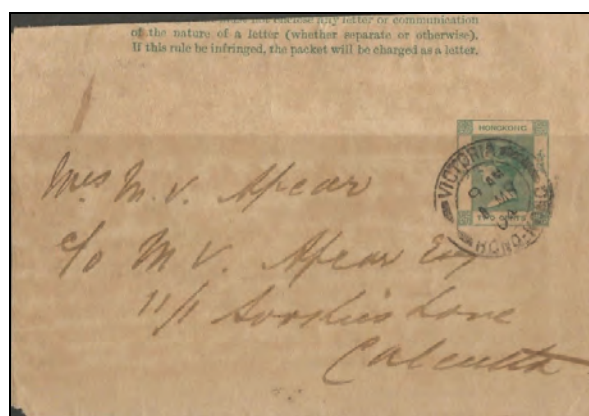 must not enclose any letter or communication
of the nature of a letter (whether separate or otherwise).
If this rule be infringed, the packet will be charged as a letter.
HONGKONG
TWO CENTS
VICTORIA
9 AM
HONG-KONG
Mrs M. V. Apcar
c/o M V. Apcar Esq
11/1 Sookias Lane
Calcutta